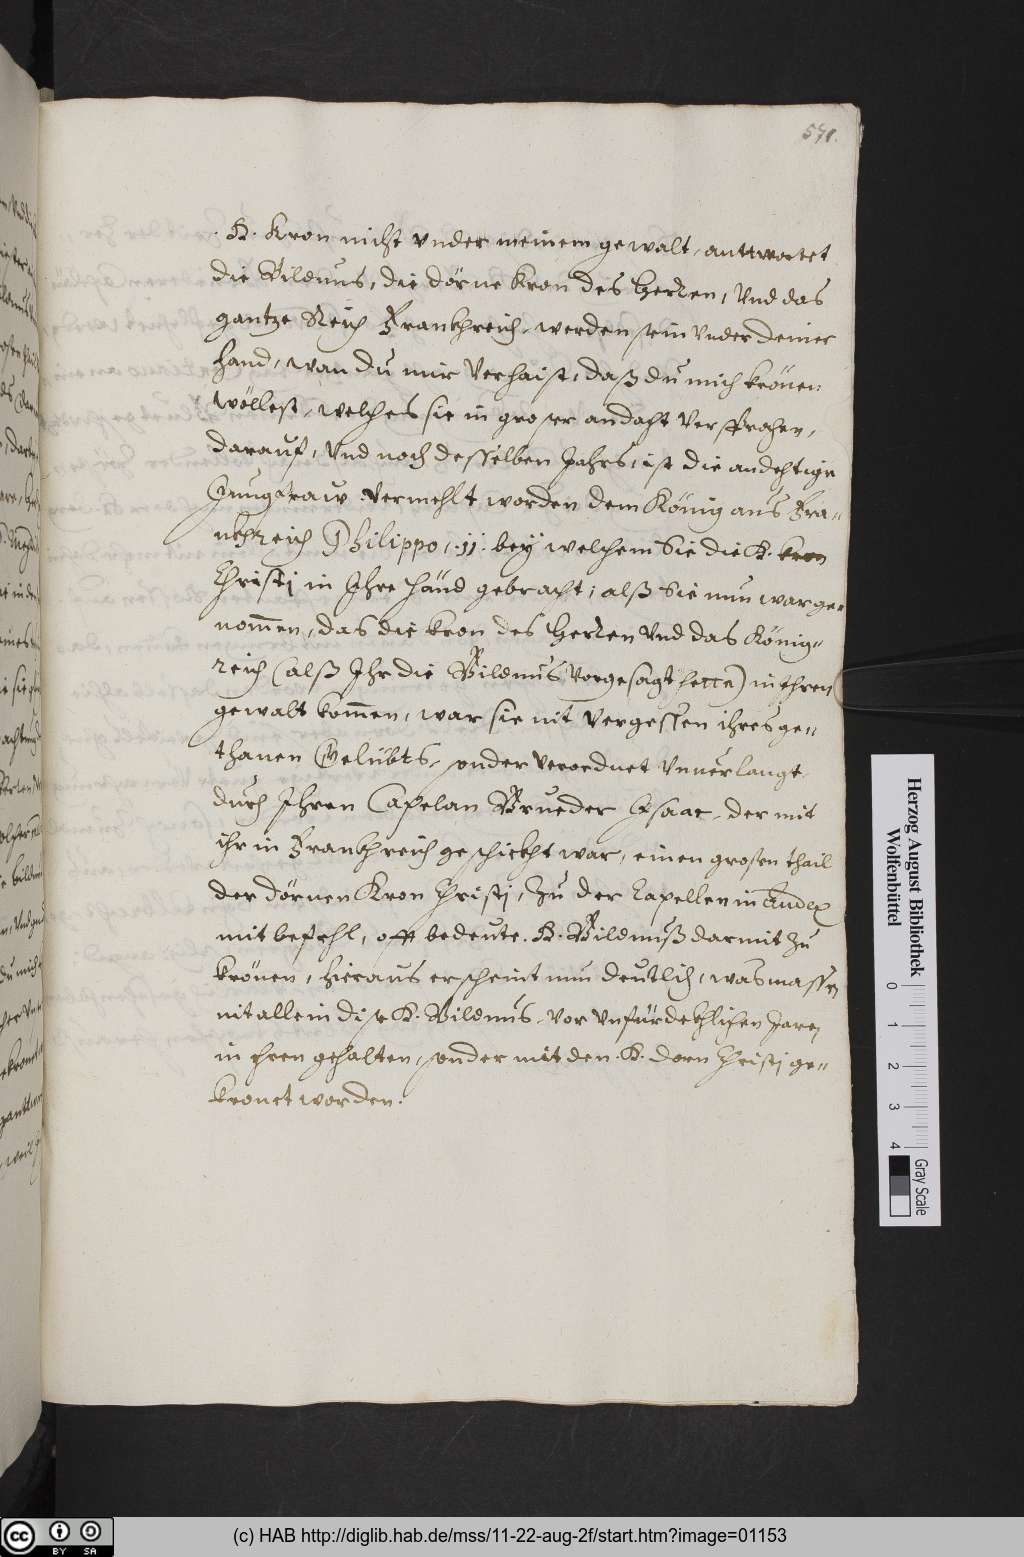 571.
.H. Kron nicht vnder meinem gewalt, anttwortet
die Bildnus, die dörne Kron des Herren, Vnd das
gantze Reich Frankhreich, werden sein vnder deiner
hand, wan du mir Verhaist, daß du mich krönen
wöllest, welches sie in groser andacht Versprochen,
darauf, Vnd noch desselben Jahrs, ist die andechtige
Jungfraw Vermehlt worden dem König aus Fra-
nkhreich Philippo, .ij. bey welchem Sie die H. kron
Christj in Ihre händ gebracht; alß Sie nun warge-
nommen, das die kron des Herren Vnd das König-
reich (alß Ihr die Bildnus Vorgesagt hette) in ihren
gewalt kommen, war sie nit Vergessen ihres ge-
thanen Gelübts, sonder Verordnet Vnuerlangt
durch Ihren Capelan Brueder Isaac, der mit
ihr in Frankhreich geschickht war, einen grosen thail
der dörnen Kron Christj, Zu der Capellen in
mit befehl, offt bedeute .H. Bildnuß darmit Zu
krönen, hieraus erscheint nun deutlich, was massen
nit allein dise H. Bildnus, Vor Vnfürdechlichen Jaren
in ehren gehalten, sonder mit den .H. dorn Christj ge-
kronet worden.
Herzog August Bibliothek
Wolfenbüttel
0 1 2 3 4
Gray Scale
cc BY SA
(c) HAB http://diglib.hab.de/mss/11-22-aug-2f/start.htm?image=01153